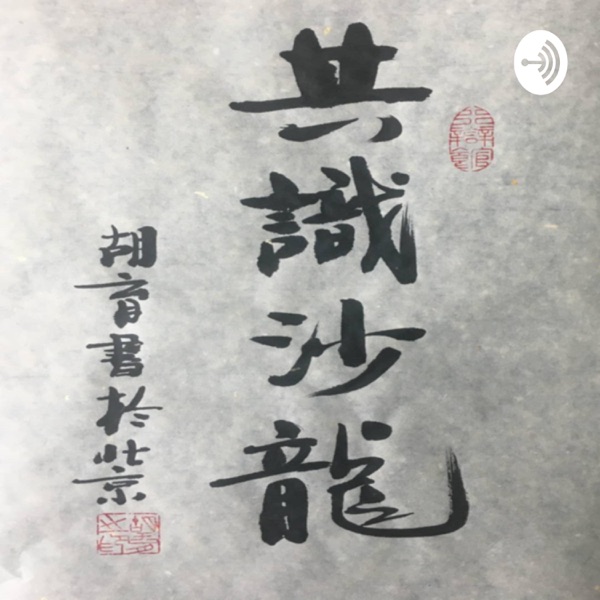 共識沙龍
胡育書於北京